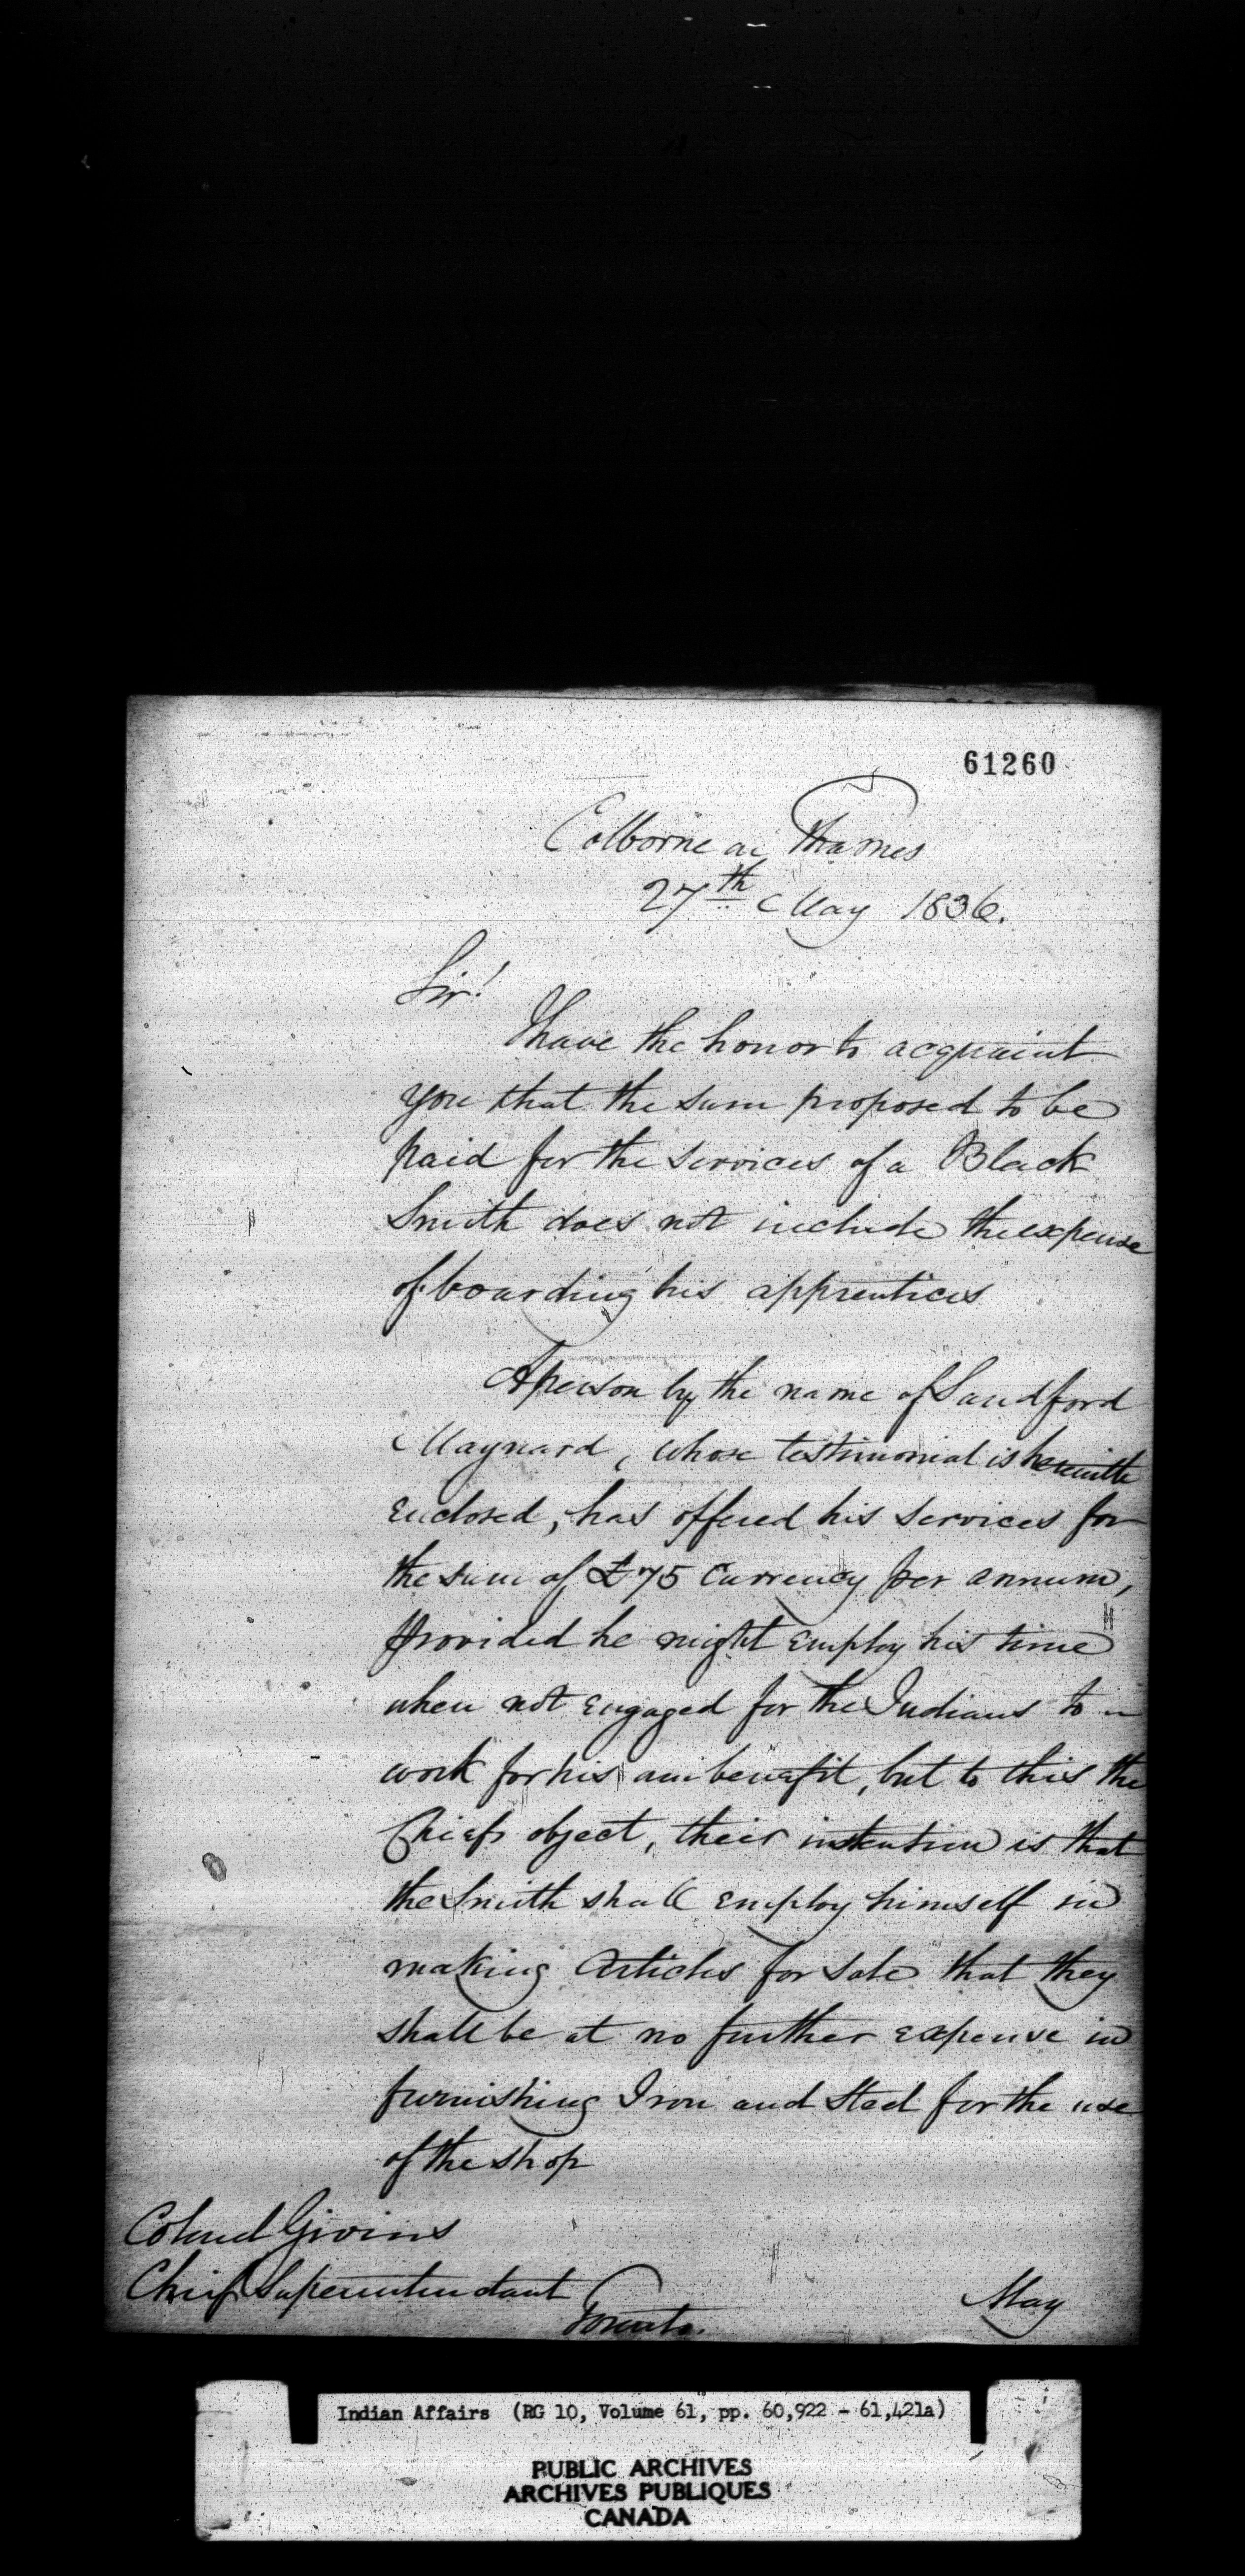 61260
Colborne on Thames
27th May 1836.
Sir!
I have the honor to acquaint
you that the sum proposed to be
paid for the services of a Black
Smith does not include the expense
of boarding his apprentices
A person by the name of Sandford
Maynard, whose testimonial is herewith
enclosed, has offered his services for
the sum of £75 Currency per annum,
provided he might employ his time
when not engaged for the Indians to
work for his own benefit, but to this the
Chiefs object, their intention is that
the Smith shall employ himself in
making articles for sale that they
shall be at no further expense in
furnishing Iron and Steel for the use
of the shop
Colonel Givins
Chief Superintendant
Toronto.
May
Indian Affairs (RG 10, Volume 61, pp. 60,922 - 61,421a)
PUBLIC ARCHIVES
ARCHIVES PUBLIQUES
CANADA